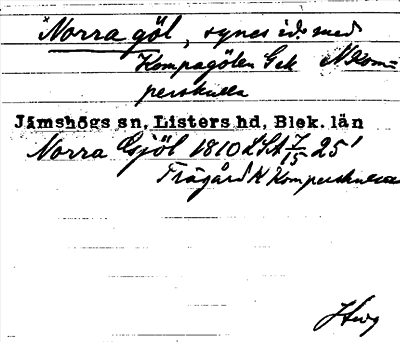 Norra göl, synes id. med
Kompagölen Gek N Kom-
perskulla
Jämshögs sn, Listers hd, Blek. län
Norra Gjöl 1810 LSA 7/15 25'
Trägård N Komperskulla